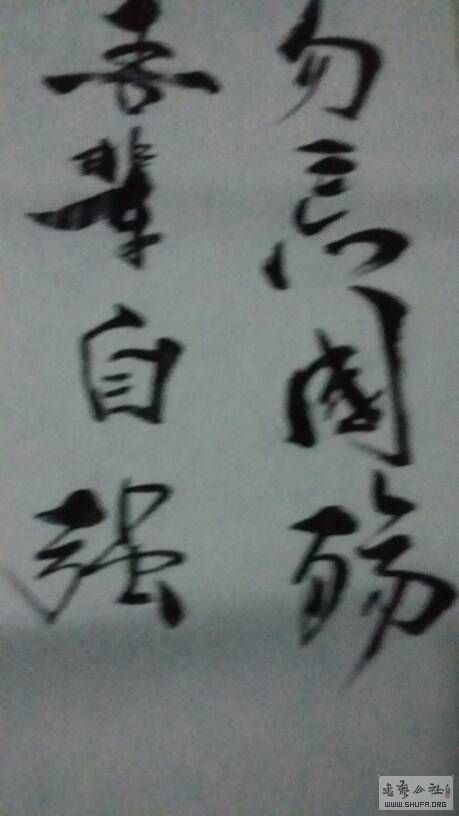 勿忘国殇
吾辈自强
书法公社
WWW.SHUFA.ORG